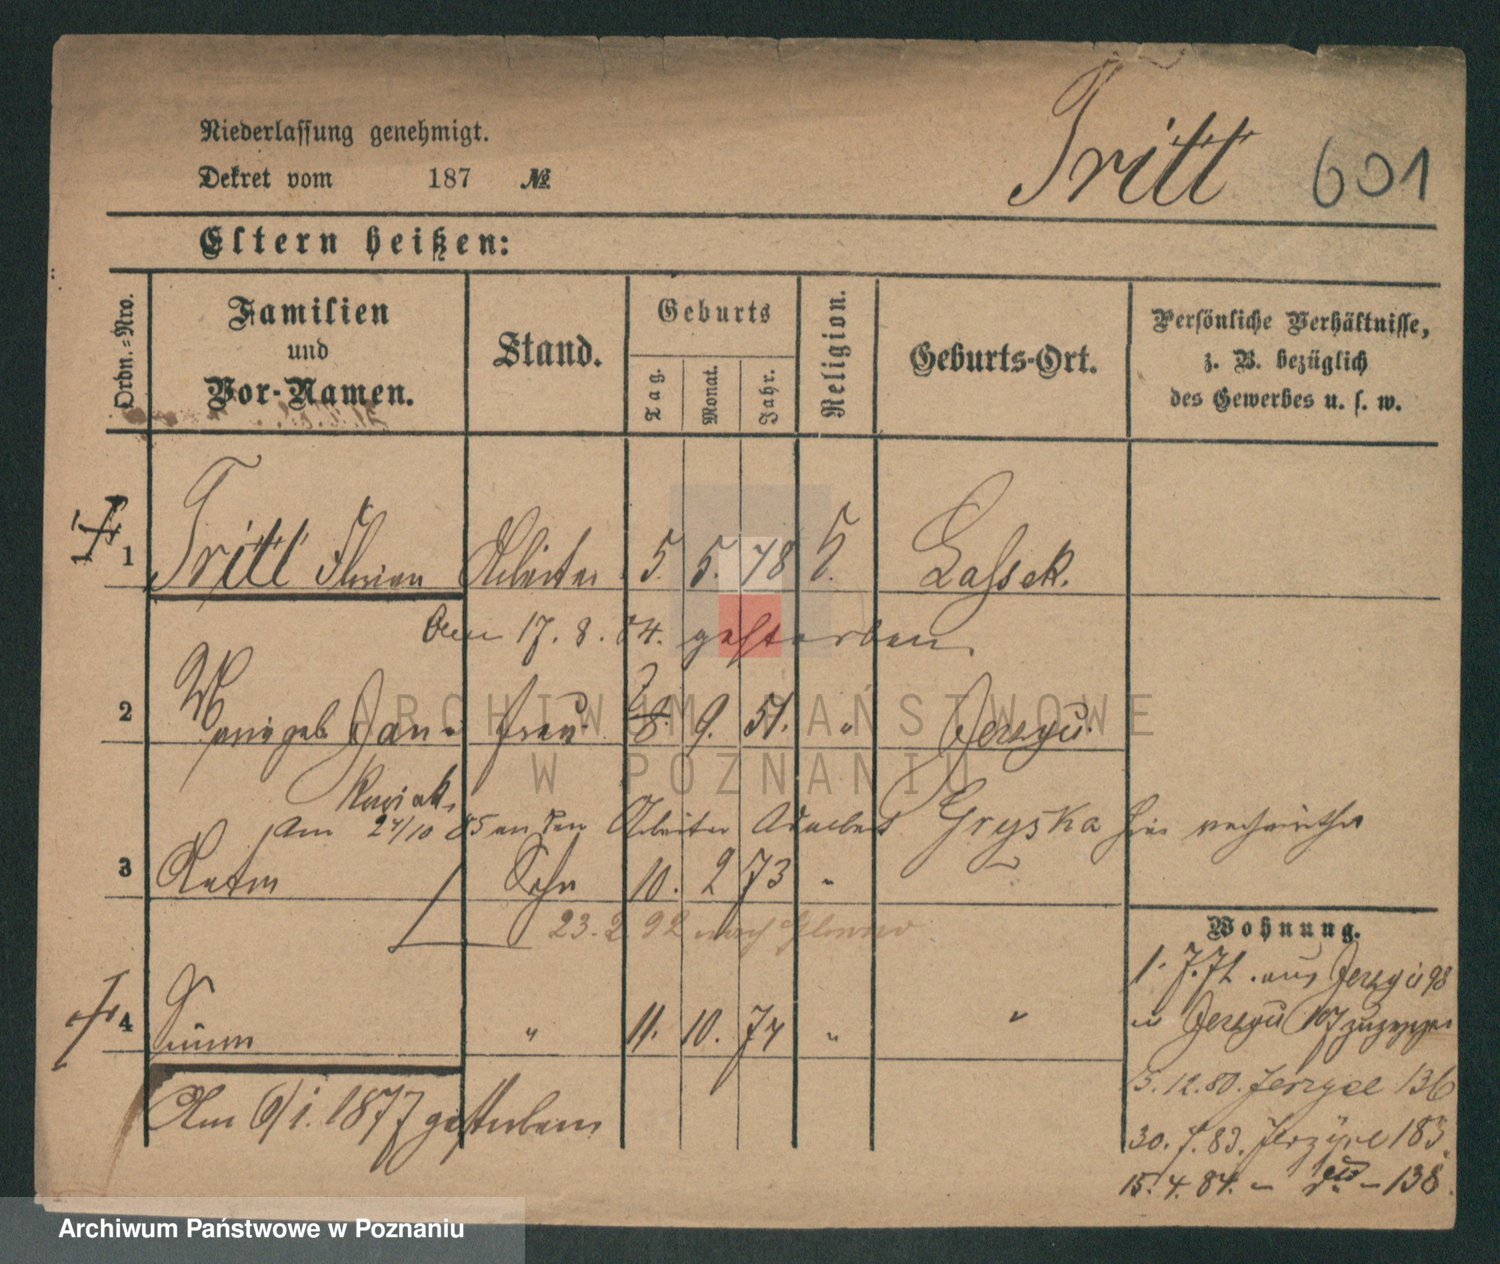 Tritt 601
Niederlassung genehmigt.
Dekret vom 187 №
Eltern heißen:
Ordn.-Nro.
Familien
und
Vor-Namen.
Stand.
Geburts
Tag.
Monat.
Jahr.
Religion.
Geburts-Ort.
Persönliche Verhältnisse,
z. B. bezüglich
des Gewerbes u. s. w.
1 Tritt Florian Arbeiter 5. 5. 48 Lassek.
Am 17. 8. 84. gestorben
2 geb Jani frau 8. 9. 51. " Jerzyü.
Am 27/10 85 an den Arbeiter Adalbert Gryska hier
3 Anton Sohn 10. 2 73 "
23. 2. 92 nach
4 " 11. 10. 74 " "
Am 6/1. 1877 gestorben
Wohnung.
1. 7. 71. aus Jerzyü 98
Jerzyü 107 zugezogen
12. 80. Jerzyce 136
30. 7. 83. Jerzyce 183.
15. 4. 84. - dto - 138.
ARCHIWUM PAŃSTWOWE
W POZNANIU
Archiwum Państwowe w Poznaniu